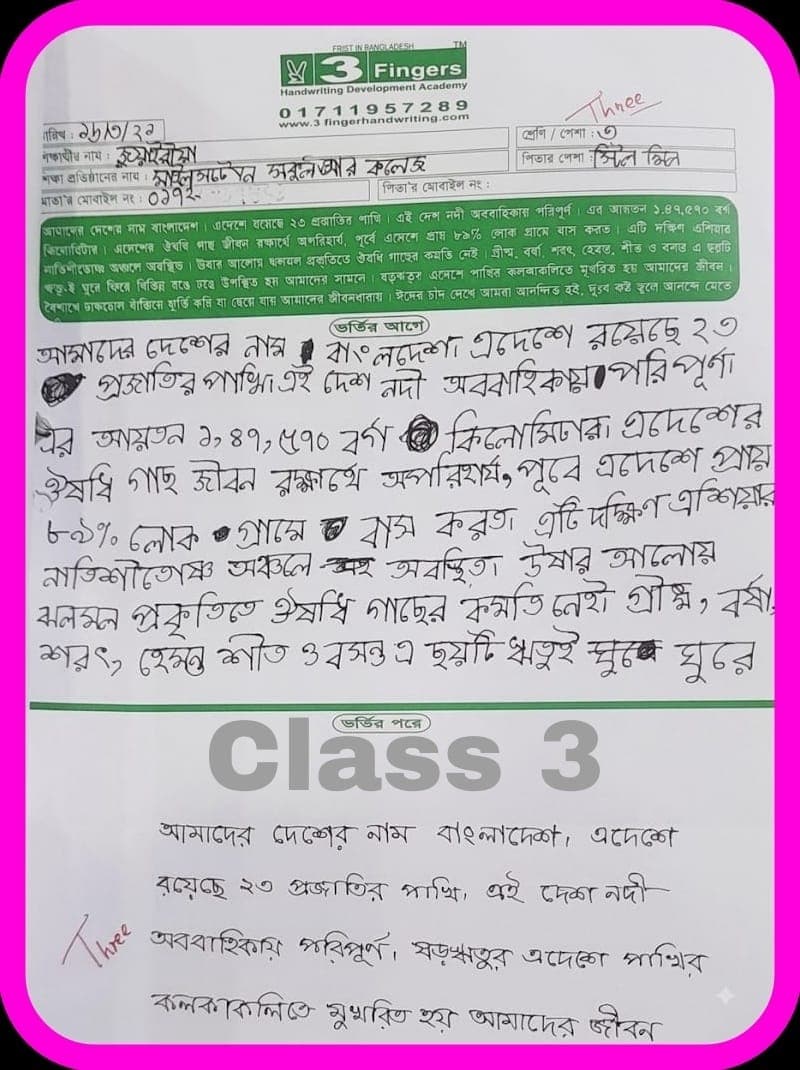 FRIST IN BANGLADESH
TM
3 Fingers
Handwriting Development Academy
01711957289
www.3 fingerhandwriting.com
Three
তারিখ : ২৬/৩/২২
শ্রেণি / পেশা : ৩
শিক্ষার্থীর নাম : জুয়াইরীয়া
পিতার পেশা :
শিক্ষা প্রতিষ্ঠানের নাম : মাইলস্টোন স্কুল আর কলেজ
মাতা'র মোবাইল নং : ০১৭২
পিতা'র মোবাইল নং :
আমাদের দেশের নাম বাংলাদেশ। এদেশে রয়েছে ২৩ প্রজাতির পাখি। এই দেশ নদী অববাহিকায় পরিপূর্ণ। এর আয়তন ১,৪৭,৫৭০ বর্গ
কিলোমিটার। এদেশের ঔষধি গাছ জীবন রক্ষার্থে অপরিহার্য, পূর্বে এদেশে প্রায় ৮৯% লোক গ্রামে বাস করত। এটি দক্ষিণ এশিয়ার
নাতিশীতোষ্ণ অঞ্চলে অবস্থিত। উষার আলোয় ঝলমল প্রকৃতিতে ঔষধি গাছের কমতি নেই। গ্রীষ্ম, বর্ষা, শরৎ, হেমন্ত, শীত ও বসন্ত এ ছয়টি
ঋতুই ঘুরে ফিরে বিভিন্ন রঙে ঢঙে উপস্থিত হয় আমাদের সামনে। ষড়ঋতুর এদেশে পাখির কলকাকলিতে মুখরিত হয় আমাদের জীবন।
বৈশাখে ঢাকঢোল বাজিয়ে ফুর্তি করি যা ছেয়ে যায় আমাদের জীবনধারায়। ঈদের চাঁদ দেখে আমরা আনন্দিত হই, দুঃখ কষ্ট ভুলে আনন্দে মেতে
ভর্তির আগে
আমাদের দেশের নাম বাংলদেশ। এদেশে রয়েছে ২৩
প্রজাতির পাখি। এই দেশ নদী অববাহিকায় পরিপূর্ণ।
এর আয়তন ১,৪৭,৫৭০ বর্গ কিলোমিটার। এদেশের
ঔষধি গাছ জীবন রক্ষার্থে অপরিহার্য, পূবে এদেশে প্রায়
৮৯% লোক গ্রামে বাস করত। এটি দক্ষিণ এশিয়ার
নাতিশীতোষ্ণ অঞ্চলে অবস্থিত। উষার আলোয়
ঝলমল প্রকৃতিতে ঔষধি গাছের কমতি নেই। গ্রীষ্ম, বর্ষা,
শরৎ, হেমন্ত শীত ও বসন্ত এ ছয়টি ঋতুই ঘুরে
ভর্তির পরে
Class 3
আমাদের দেশের নাম বাংলাদেশ। এদেশে
রয়েছে ২৩ প্রজাতির পাখি। এই দেশ নদী
Three
অববাহিকায় পরিপূর্ণ। ষড়ঋতুর এদেশে পাখির
কলকাকলিতে মুখরিত হয় আমাদের জীবন